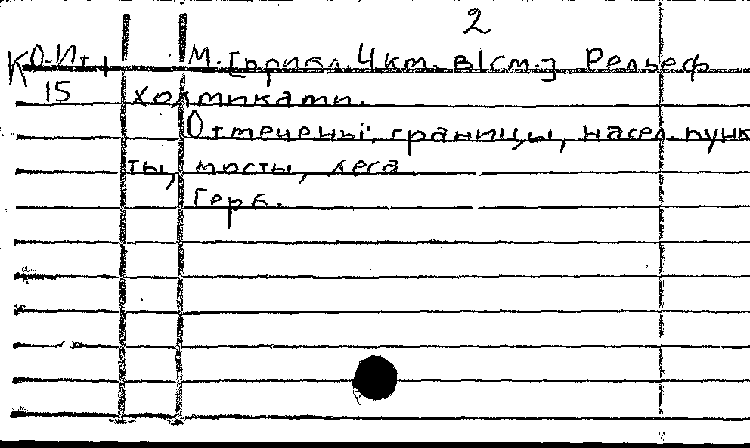 2
К О-Ит М. [прибл. 4 км. в 1 см.] Рельеф
15 холмиками.
Отмечены: границы, насел. пунк-
ты, мосты, леса
Герб.